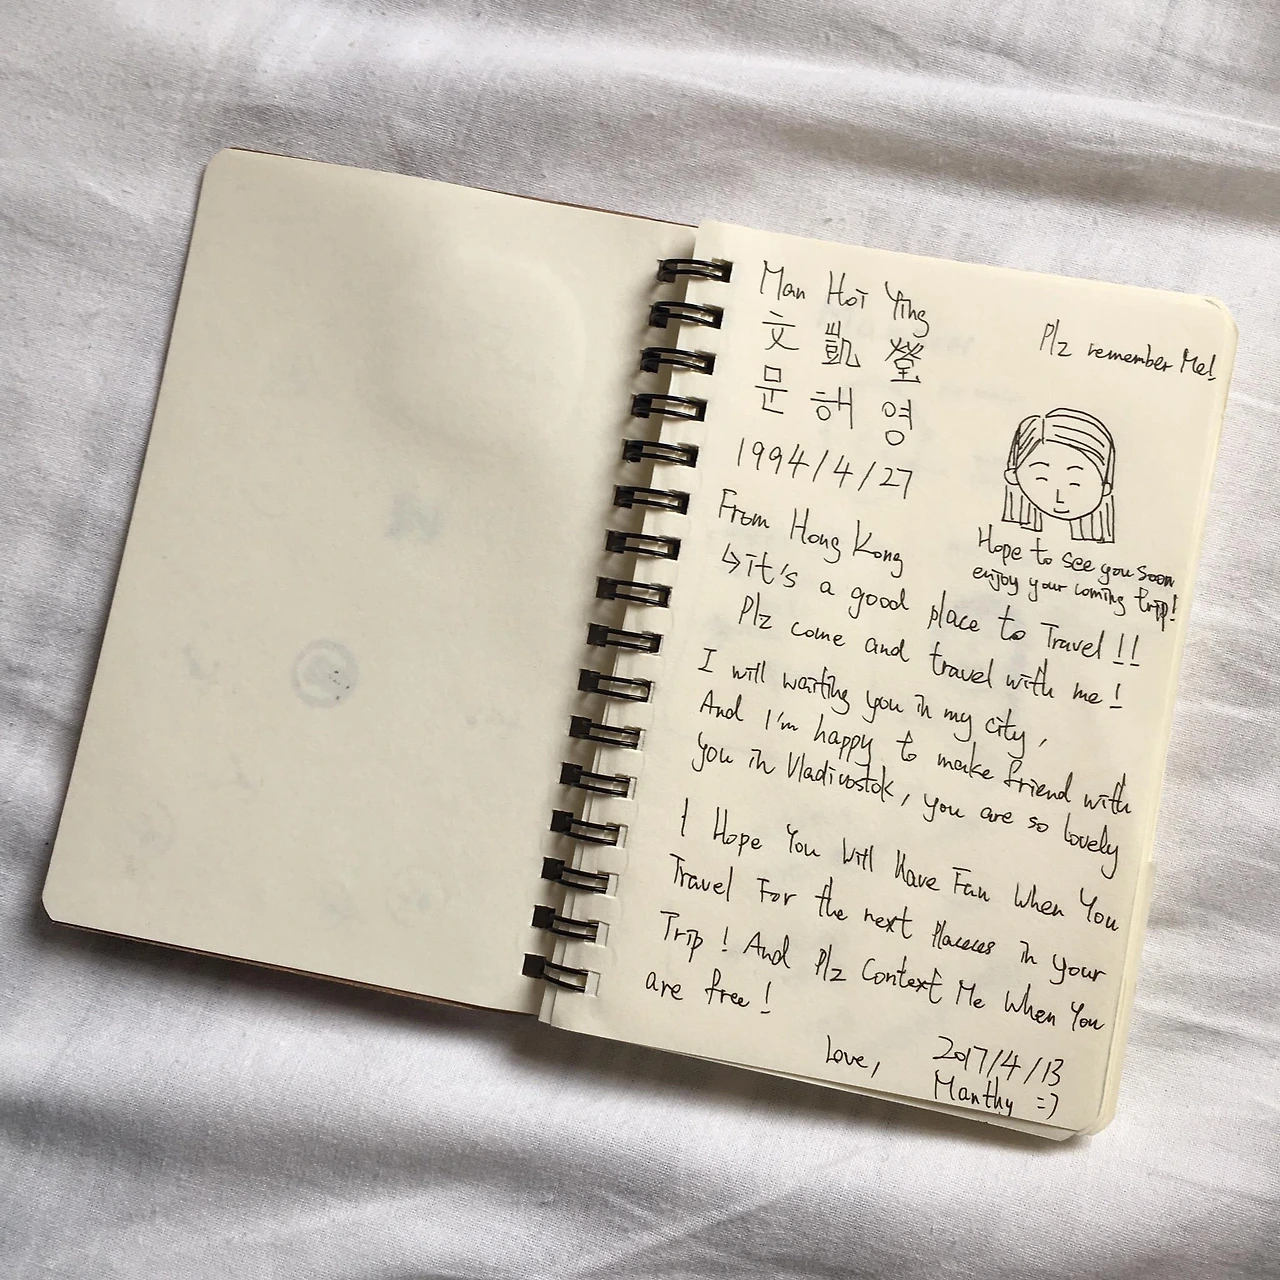 Man Hoi Ying
文 凱 瑩
문 해 영
1994/4/27
Plz remember Me!
Hope to see you soon
enjoy your coming trip!
From Hong Kong
↳it's a good place to Travel!!
Plz come and travel with me!
I will waiting you in my city,
And I'm happy to make friend with
you in Vladivostok, you are so lovely
I Hope You Will Have Fun When You
Travel For the next Places in your
Trip! And Plz Context Me When You
are free!
Love, 2017/4/13
Manthy =)